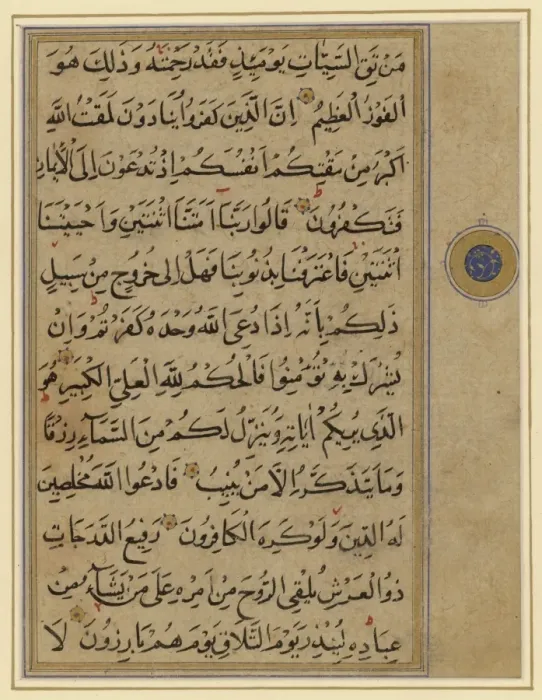 مَنْ تَقِ السَّيِّئَاتِ يَوْمَئِذٍ فَقَدْ رَحِمْتَهُ وَذَلِكَ هُوَ
الْفَوْزُ الْعَظِيمُ اِنَّ الَّذِينَ كَفَرُوا يُنَادَوْنَ لَمَقْتُ اللَّهِ
اَكْبَرُ مِنْ مَقْتِكُمْ اَنْفُسَكُمْ اِذْ تُدْعَوْنَ اِلَى الْاِيمَانِ
فَتَكْفُرُونَ قَالُوا رَبَّنَا اَمَتَّنَا اثْنَتَيْنِ وَاَحْيَيْتَنَا
اثْنَتَيْنِ فَاعْتَرَفْنَا بِذُنُوبِنَا فَهَلْ اِلَى خُرُوجٍ مِنْ سَبِيلٍ
ذَلِكُمْ بِاَنَّهُ اِذَا دُعِىَ اللَّهُ وَحْدَهُ كَفَرْتُمْ وَاِنْ
يُشْرَكْ بِهِ تُؤْمِنُوا فَالْحُكْمُ لِلَّهِ الْعَلِىِّ الْكَبِيرِ هُوَ
الَّذِى يُرِيكُمْ اٰيَاتِهِ وَيُنَزِّلُ لَكُمْ مِنَ السَّمَآءِ رِزْقًا
وَمَا يَتَذَكَّرُ اِلَّا مَنْ يُنِيبُ فَادْعُوا اللَّهَ مُخْلِصِينَ
لَهُ الدِّينَ وَلَوْ كَرِهَ الْكَافِرُونَ رَفِيعُ الدَّرَجَاتِ
ذُو الْعَرْشِ يُلْقِى الرُّوحَ مِنْ اَمْرِهِ عَلَى مَنْ يَشَآءُ مِنْ
عِبَادِهِ لِيُنْذِرَ يَوْمَ التَّلَاقِ يَوْمَ هُمْ بَارِزُونَ لَا